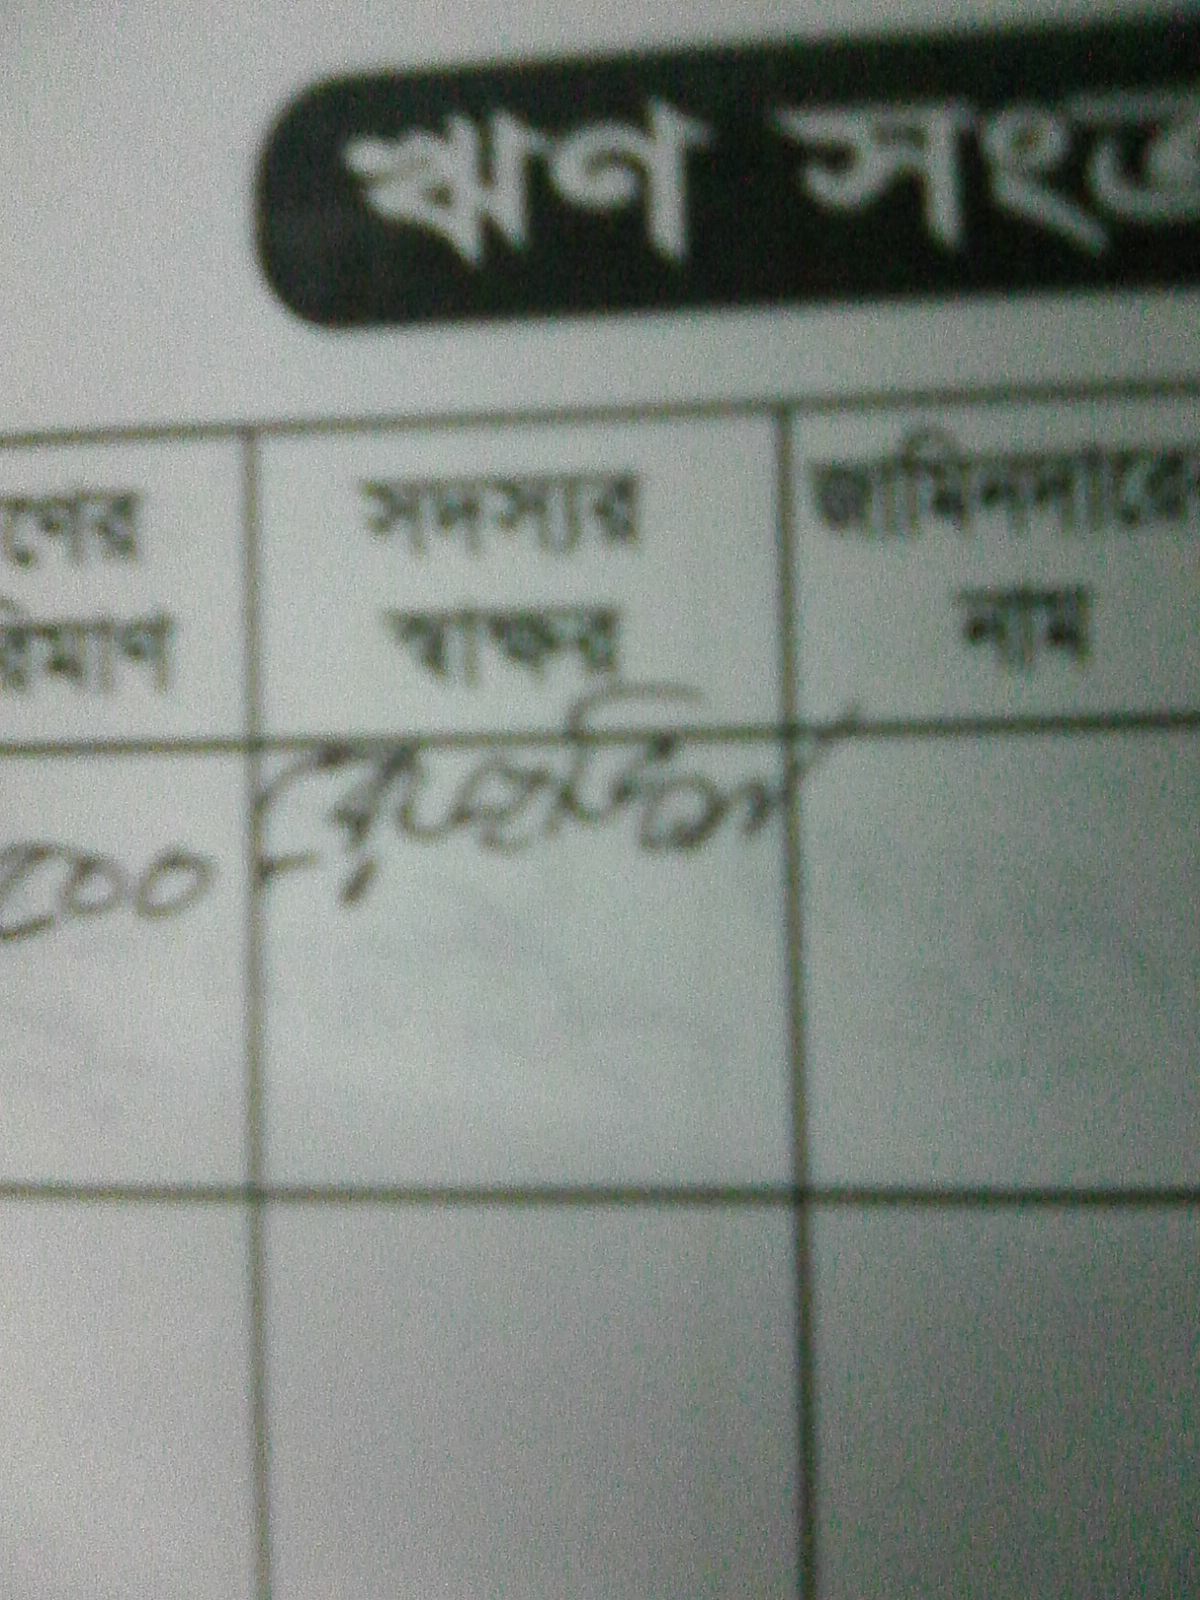 ঋণ সংক্র
ণের
রিমাণ
সদস্যর
স্বাক্ষর
জামিনদারের
নাম